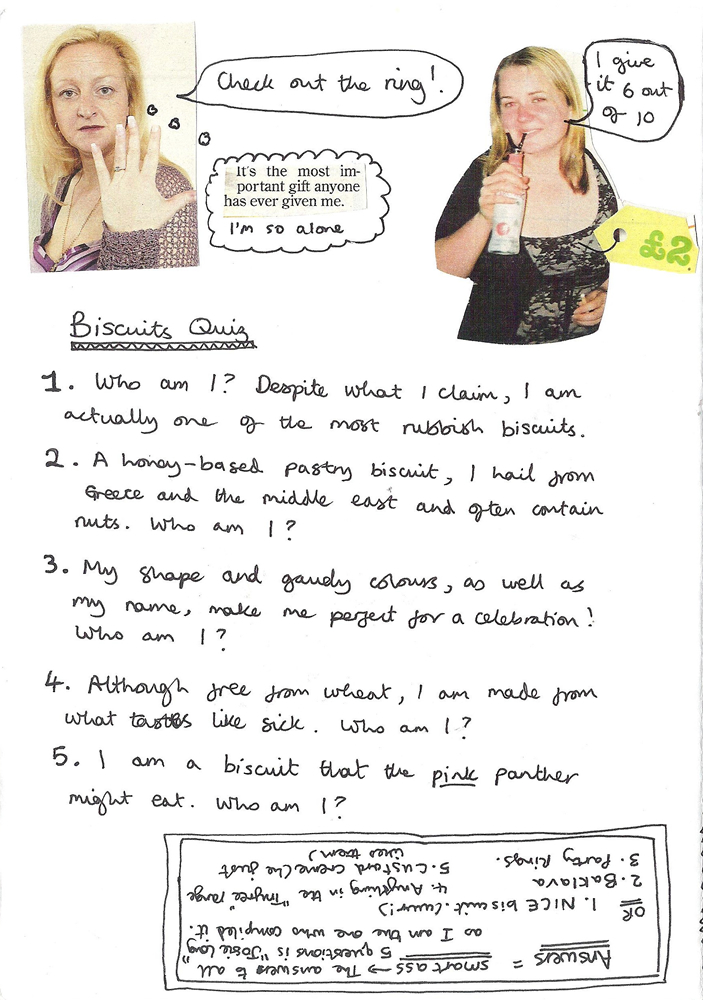 Check out the ring!
I give
it 6 out
of 10
It's the most im-
portant gift anyone
has ever given me.
I'm so alone
£2
Biscuits Quiz
1. Who am I? Despite what I claim, I am
actually one of the most rubbish biscuits.
2. A honey-based pastry biscuit, I hail from
Greece and the middle east and often contain
nuts. Who am I?
3. My shape and gaudy colours, as well as
my name, make me perfect for a celebration!
Who am I?
4. Although free from wheat, I am made from
what tastes like sick. Who am I?
5. I am a biscuit that the pink panther
might eat. Who am I?
Answers = smart ass → The answers to all
5 questions is "Josie Long"
as I am the one who compiled it.
OR 1. NICE biscuit. (liar!)
2. Baklava
3. Party Rings.
4. Anything in the "Trufree" range
5. Custard creme (he just
likes them)